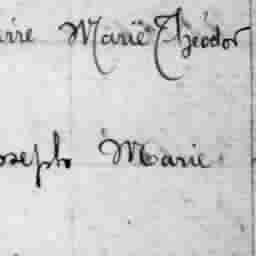 irre Marie Théodor
oseph Marie